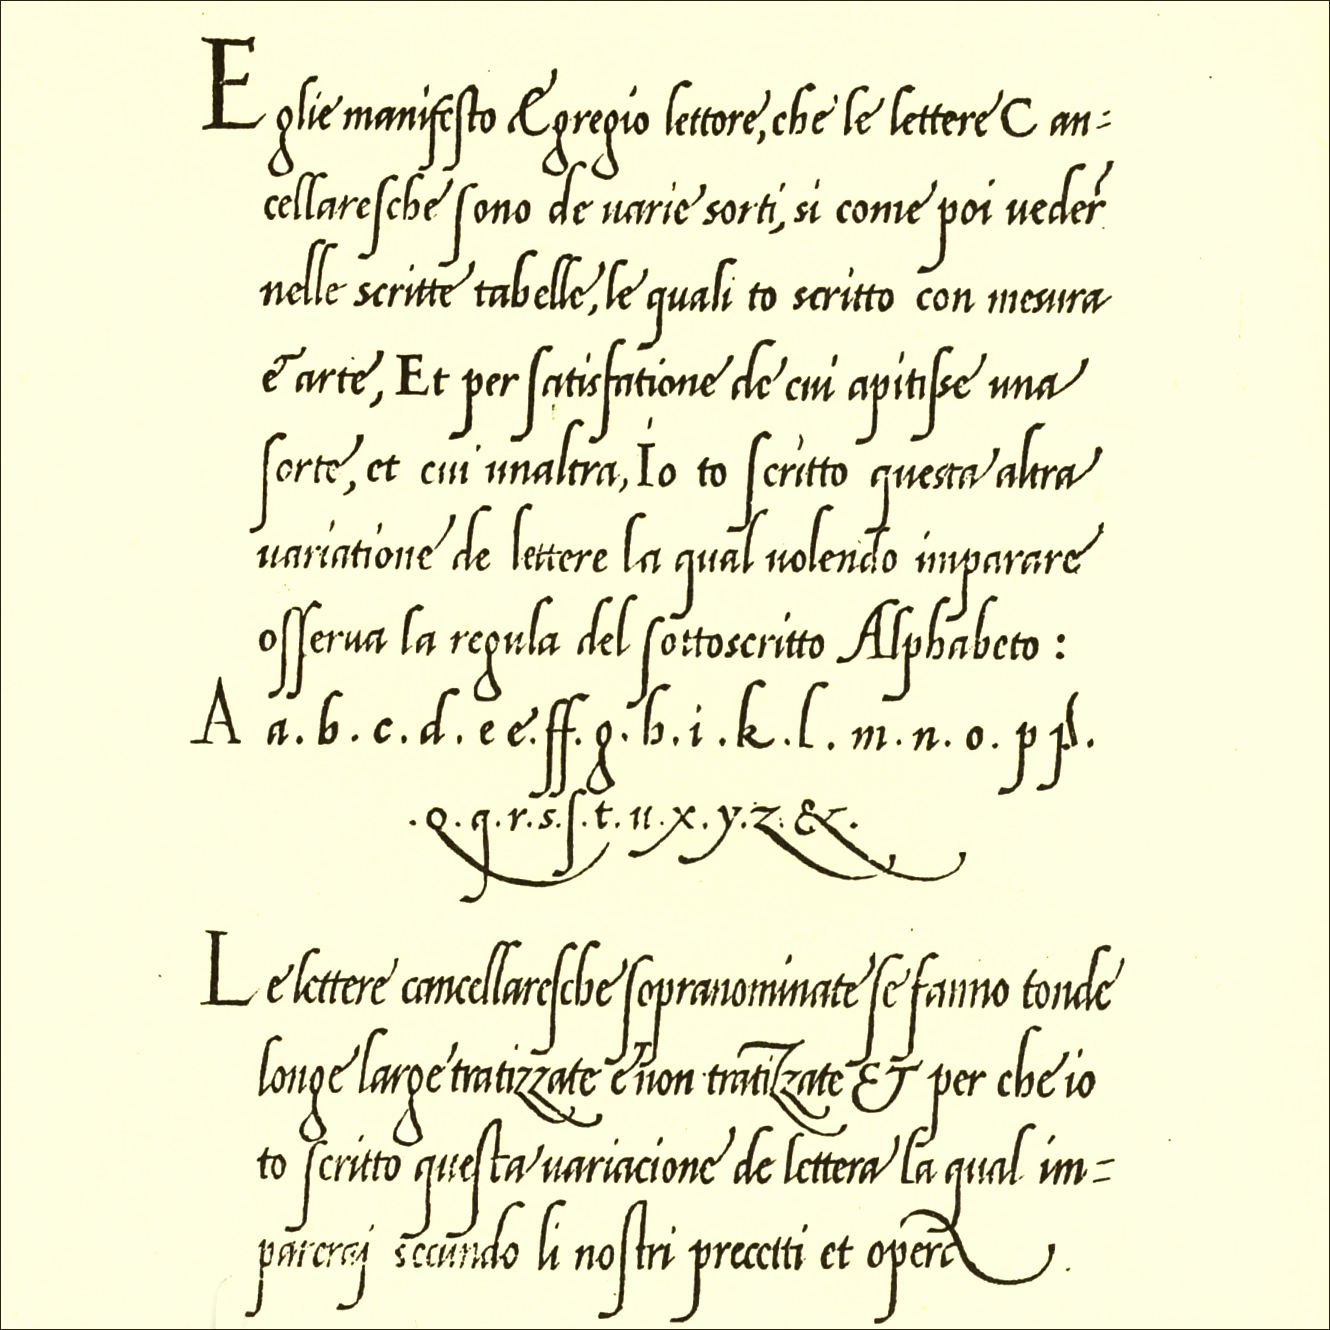 Eglie manifesto Egregio lettore, che le lettere Can-
cellaresche sono de uarie sorti, si come poi ueder
nelle scritte tabelle, le quali to scritto con mesura
e arte, Et per satisfatione de cui apitisse una
sorte, et cui unaltra, Io to scritto questa altra
uariatione de lettere la qual uolendo imparare
osserua la regula del sottoscritto Alphabeto :
A a . b . c . d . e e . ff . g . h . i . k . l . m . n . o . p p .
. q . q . r . s . s . t . u . x . y . z . & .
Le lettere cancellaresche sopranominate se fanno tonde
longe large tratizzate e non tratizzate & per che io
to scritto questa uariacione de lettera la qual im-
pareraj secundo li nostri precetti et opera .